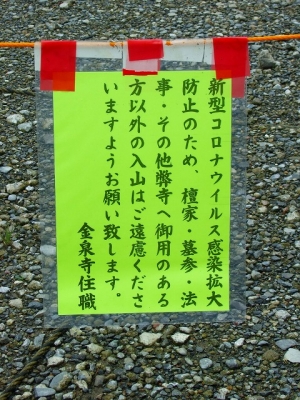 新型コロナウイルス感染拡大
防止のため、檀家・墓参・法
事・その他弊寺へ御用のある
方以外の入山はご遠慮くださ
いますようお願い致します。
金泉寺住職